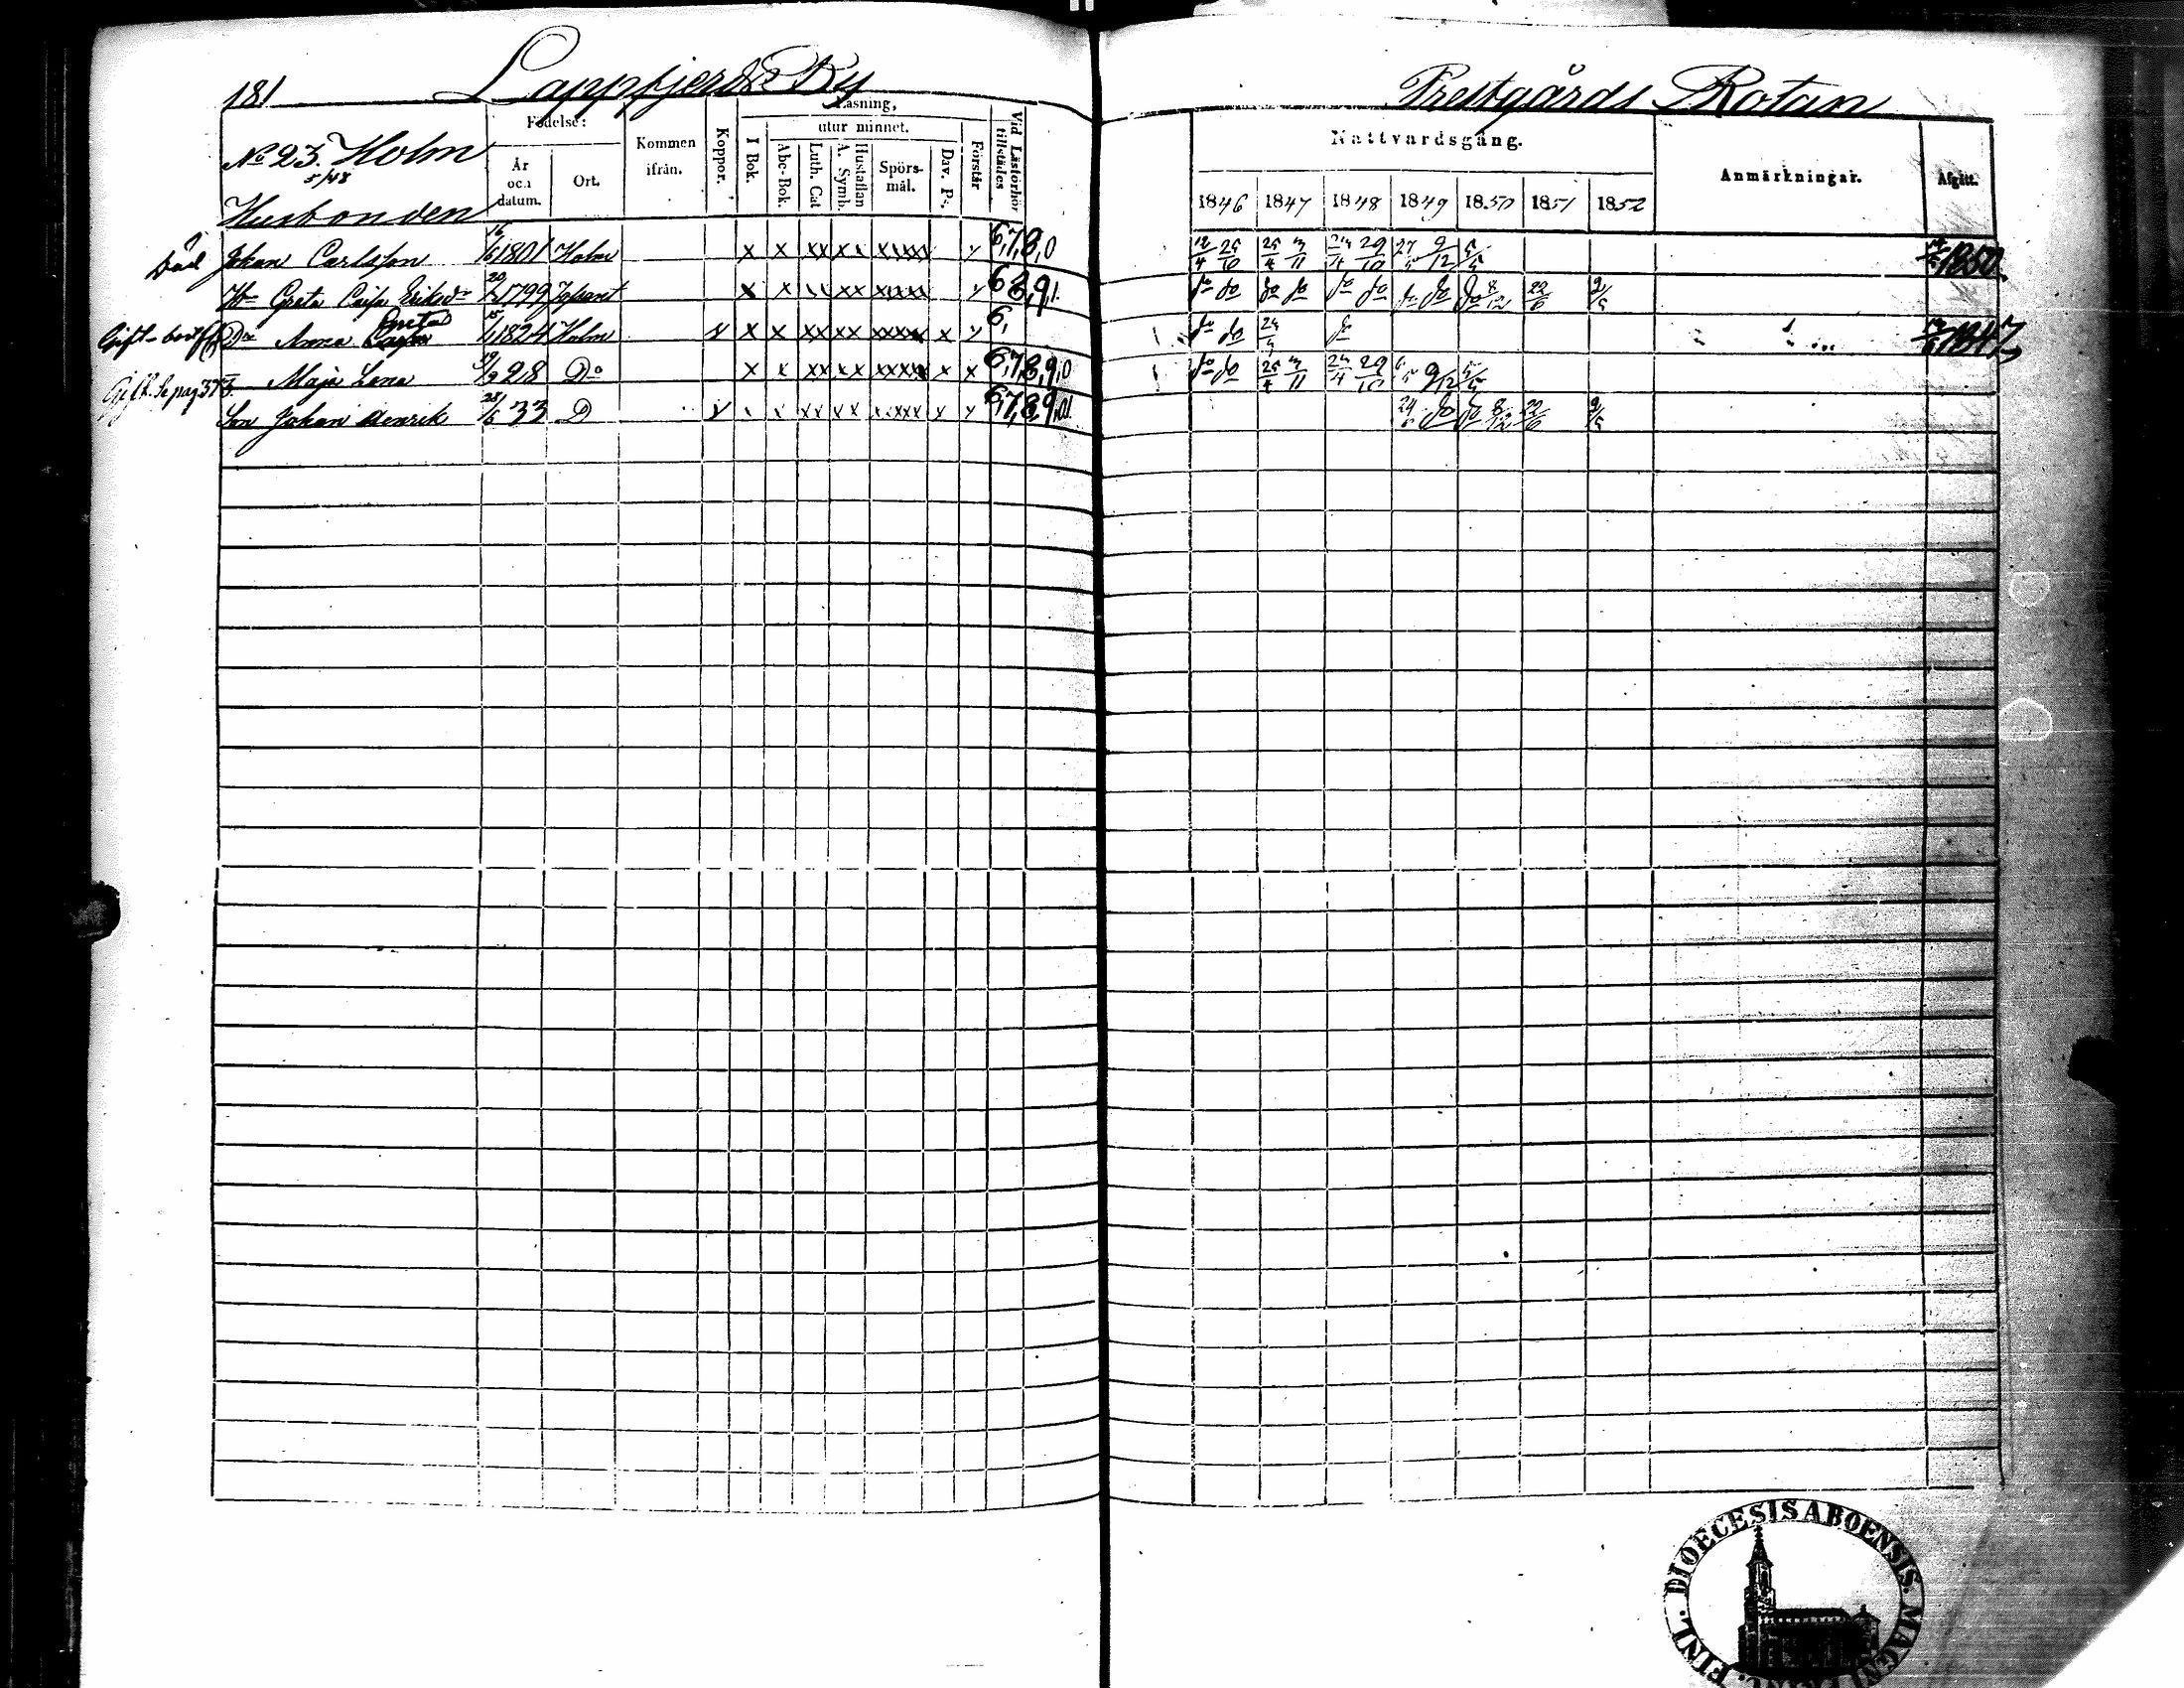 181 Lappfjerds By Prestgårds Rotan
No 23. Holm
5/48
Födelse:
År och datum.
Ort.
Kommen ifrån.
Koppor.
Läsning,
I Bok.
utur minnet.
Abc-Bok.
Luth. Cat
A. Symb.
Hustaflan
Spörs-mål.
Dav. Ps.
Förstår
Vid Läsförhör tillstädes
Nattvardsgång.
1846 1847 1848 1849 1850 1851 1852
Anmärkningar.
Afgått.
Husbonden
Död Johan Carlsson 16/6 1801 Holm x x xx xx xxxx y 6,7,8,0 12/4 25/10 25/4 3/11 24/4 29/10 27/5 9/12 5/5 1850
Hu Greta Caisa Eriksdr 1799 x x xx xx xxxx y 6 8,9,1. do do do do do do do do do 8/12 22/6 2/5
Gift Dr Anna Greta 1824 Holm x x x xx xx xxxx x y 6, do do 24/4 do 1847
Gift. se pag 373. Maja Lena 19/9 28 Do x x xx xx xxxx x x 6,7,8,9,0 do do 25/4 3/11 24/4 29/10 9/12 5/5
Son Johan Henrik 28/6 33 D x x xx xx xxxx x y 6,7,8,9,01 24 do do 8/12 22/6 2/5
FINL. DIOECESIS ABOENSIS. MAGNI PRINC.